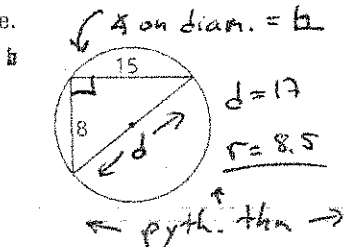 e.
∡ on diam. = ⊾
15
8
d
d = 17
r = 8.5
← pyth. thm →